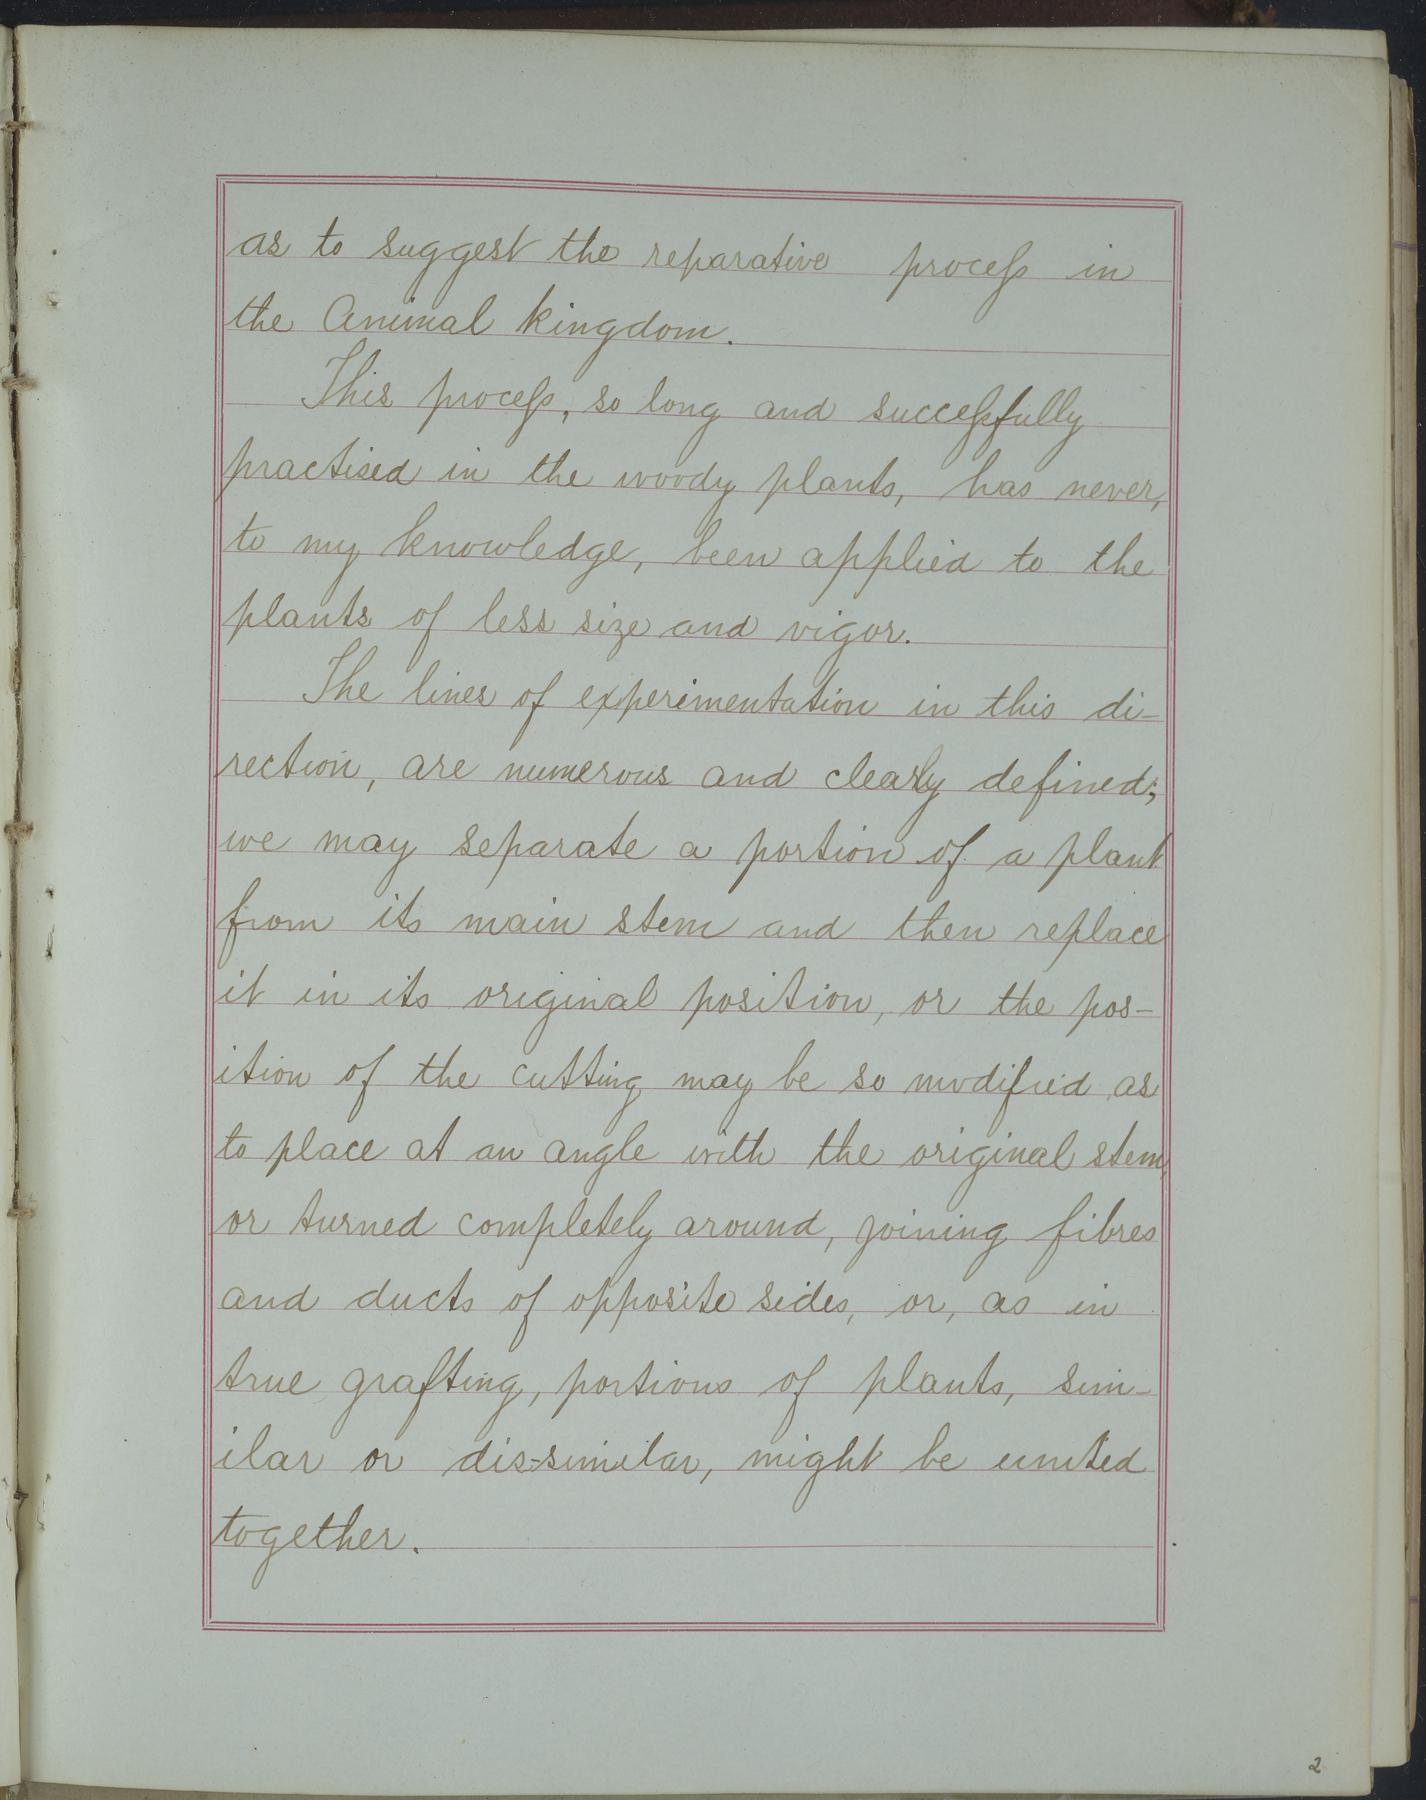 as to suggest the reparative process in
the Animal kingdom.
This process, so long and successfully
practised in the woody plants, has never,
to my knowledge, been applied to the
plants of less size and vigor.
The lines of experimentation in this di-
rection, are numerous and clearly defined;
we may separate a portion of a plant
from its main stem and then replace
it in its original position, or the pos-
ition of the cutting may be so modified as
to place at an angle with the original stem,
or turned completely around, joining fibres
and ducts of opposite sides, or, as in
true grafting, portions of plants, sim-
ilar or dis-similar, might be united
together.
2